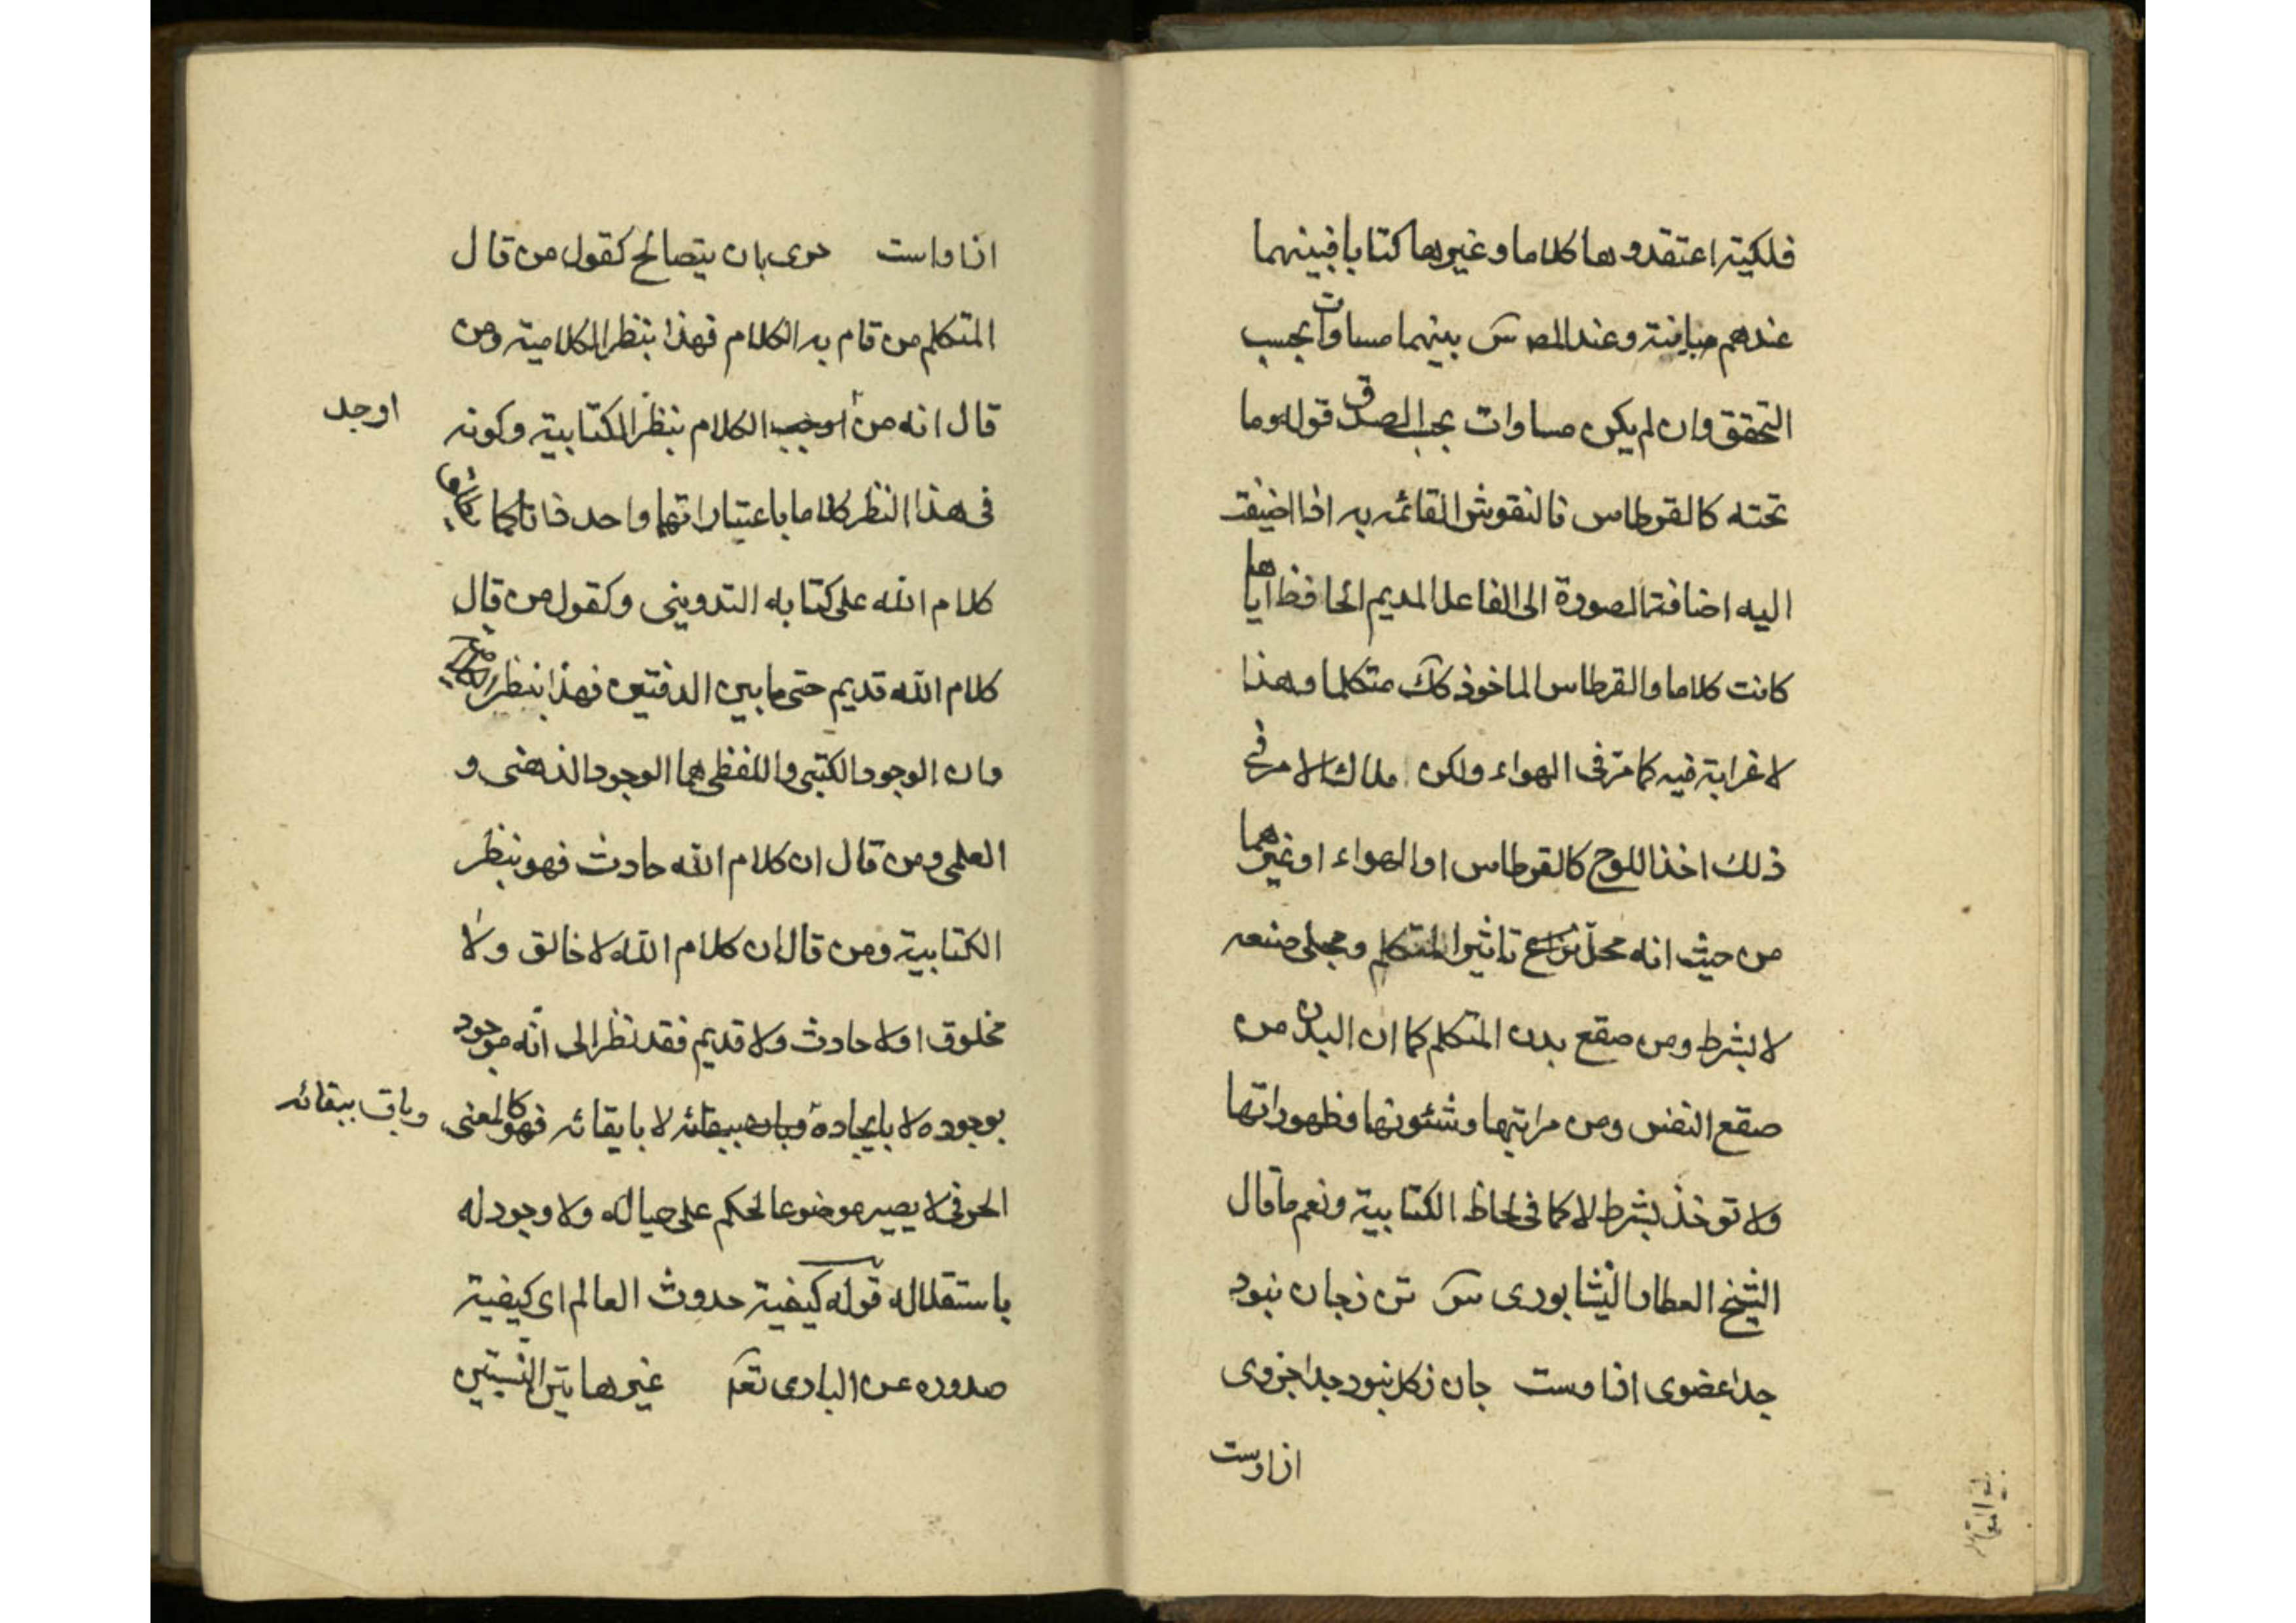 فلكية اعتقدوها كلاما وغيرها كتابا فبينهما
عندهم مباينة وعند المص س بينهما مساوات بحسب
التحقق وان لم يكن مساوات بحسب الصدق قوله وما
تحته كالقرطاس فالنقوش القائمه به اذا اضيفت
اليه اضافة الصورة الى الفاعل المديم الحافظ اياها
كانت كلاما والقرطاس الماخوذ كك متكلما وهذا
لا غرابة فيه كما مر فى الهواء ولكن ملاك الامر فى
ذلك اخذ اللوح كالقرطاس او الهواء او غيرهما
من حيث انه محل تاثير المتكلم ومجلى صنعه
لا بشرط ومن صقع بدن المتكلم كما ان البدن من
صقع النفس ومن مراتبها وشئونها وظهوراتها
ولا توخذ بشرط لا كما فى لحاظ الكتابية ونعم ما قال
الشيخ العطار النيشابورى س تن زجان نبود
جدا عضوى ازاوست جان زكل نبود جدا جزوى
ازاوست
ازاوست حرى بان يتصالح كقول من قال
المتكلم من قام به الكلام فهذا بنظر الكلامية ومن
قال انه من اوجب الكلام بنظر الكتابية وكونه
اوجد
فى هذا النظر كلاما باعتبار انهما واحد ذاتا كما
كلام الله على كتابه التدوينى وكقول من قال
كلام الله قديم حتى ما بين الدفتين فهذا بنظر
وان الوجود الكتبى واللفظى هما الوجود الذهنى و
العلمى ومن قال ان كلام الله حادث فهو بنظر
الكتابية ومن قال ان كلام الله لا خالق ولا
مخلوق او لا حادث ولا قديم فقد نظر الى انه موجود
بوجوده لا بايجاده وبان ببقائه لا بابقائه فهو كالمعنى
وباق ببقائه
الحرفى لا يصير موضوعا لحكم على حياله ولا وجود له
باستقلاله قوله كيفية حدوث العالم اى كيفية
صدوره عن البارى تعم غير هاتين النسبتين